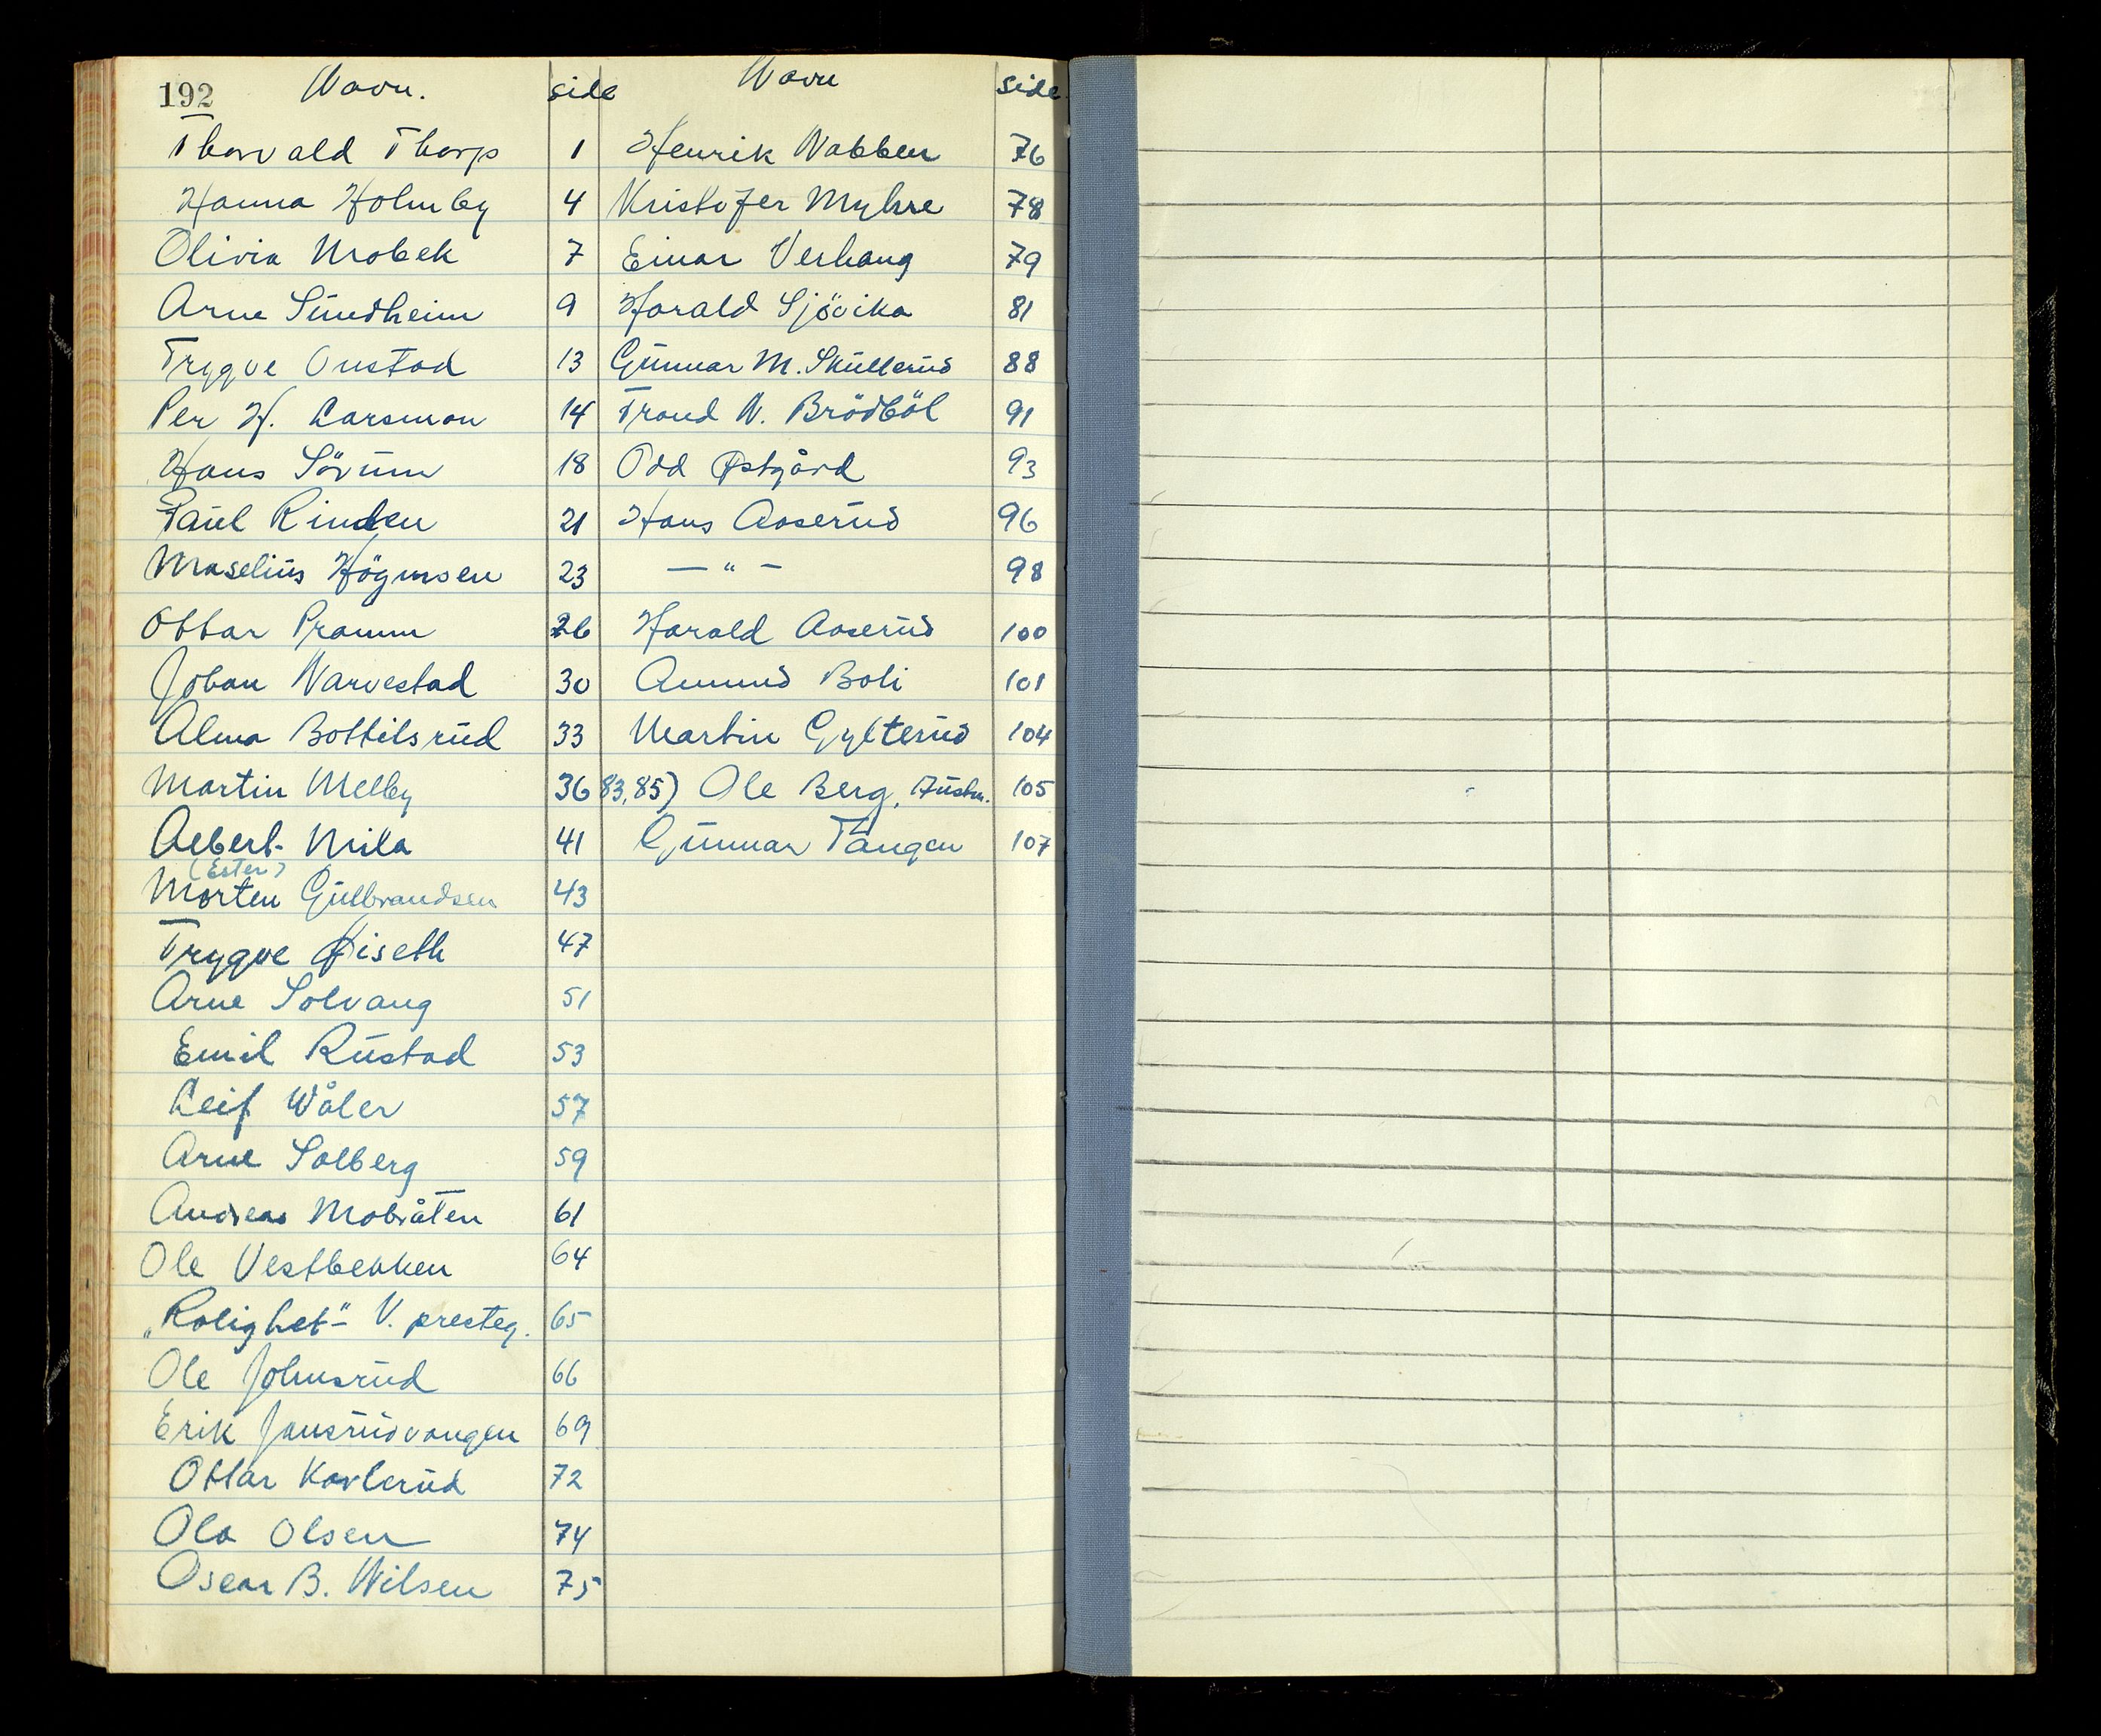 192 Navn. side Navn side
Thorvald Thorp 1 Henrik Nabben 76
Hanna Holmby 4 Kristofer Myhre 78
Olivia Mobek 7 Einar Verhaug 79
Arne Sundheim 9 Harald Sjövika 81
Trygve Onstad 13 Gunnar M. Skullerud 88
Per H. Larsmon 14 Trond N. Brödböl 91
Hans Sörum 18 Odd Østgård 93
Paul Rinden 21 Hans Aaserud 96
Maselius Högmsen 23 — " — 98
Ottar Pramm 26 Harald Aaserud 100
Johan Narvestad 30 Amund Boli 101
Alma Bottilsrud 33 Martin Gylterud 104
Martin Melby 36 83,85) Ole Berg, Austm. 105
Albert Mila 41 Gunnar Tangen 107
(Ester)
Morten Gulbrandsen 43
Trygve Øiseth 47
Arne Solvang 51
Emil Rustad 53
Leif Wåler 57
Arne Solberg 59
Andreas Mobråten 61
Ole Vestbekken 64
„Rolighet" V. presteg. 65
Ole Johnsrud 66
Erik Jansrudvangen 69
Ottar Kavlerud 72
Ola Olsen 74
Oscar B. Nilsen 75